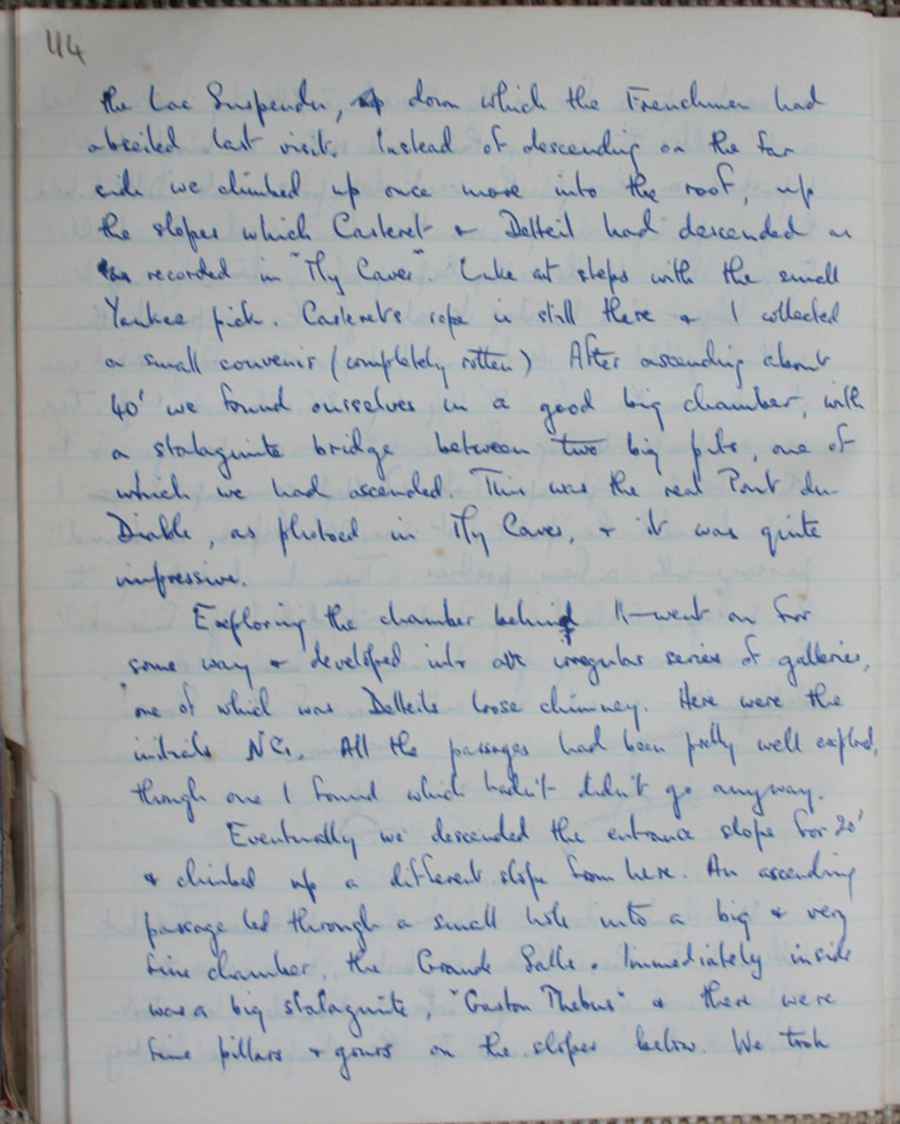 114
the Lac Suspendu, down which the Frenchmen had
abseiled last visit. Instead of descending on the far
side we climbed up once more into the roof, up
the slopes which Casteret & Delteil had descended as
recorded in "My Caves". Luke cut steps with the small
Yankee pick. Casteret's rope is still there & I collected
a small souvenir (completely rotten) After ascending about
40' we found ourselves in a good big chamber, with
a stalagmite bridge between two big pits, one of
which we had ascended. This was the real Pont du
Diable, as photoed in My Caves, & it was quite
impressive.
Exploring the chamber behind it went on for
some way & developed into an irregular series of galleries,
one of which was Delteils loose chimney. Here were the
initials NC. All the passages had been pretty well explored,
though one I found which hadn't didn't go anyway.
Eventually we descended the entrance slope for 20'
& climbed up a different slope from here. An ascending
passage led through a small hole into a big & very
fine chamber, the Grande Salle. Immediately inside
was a big stalagmite, "Gaston Thebus" & there were
fine pillars & gours on the slopes below. We took